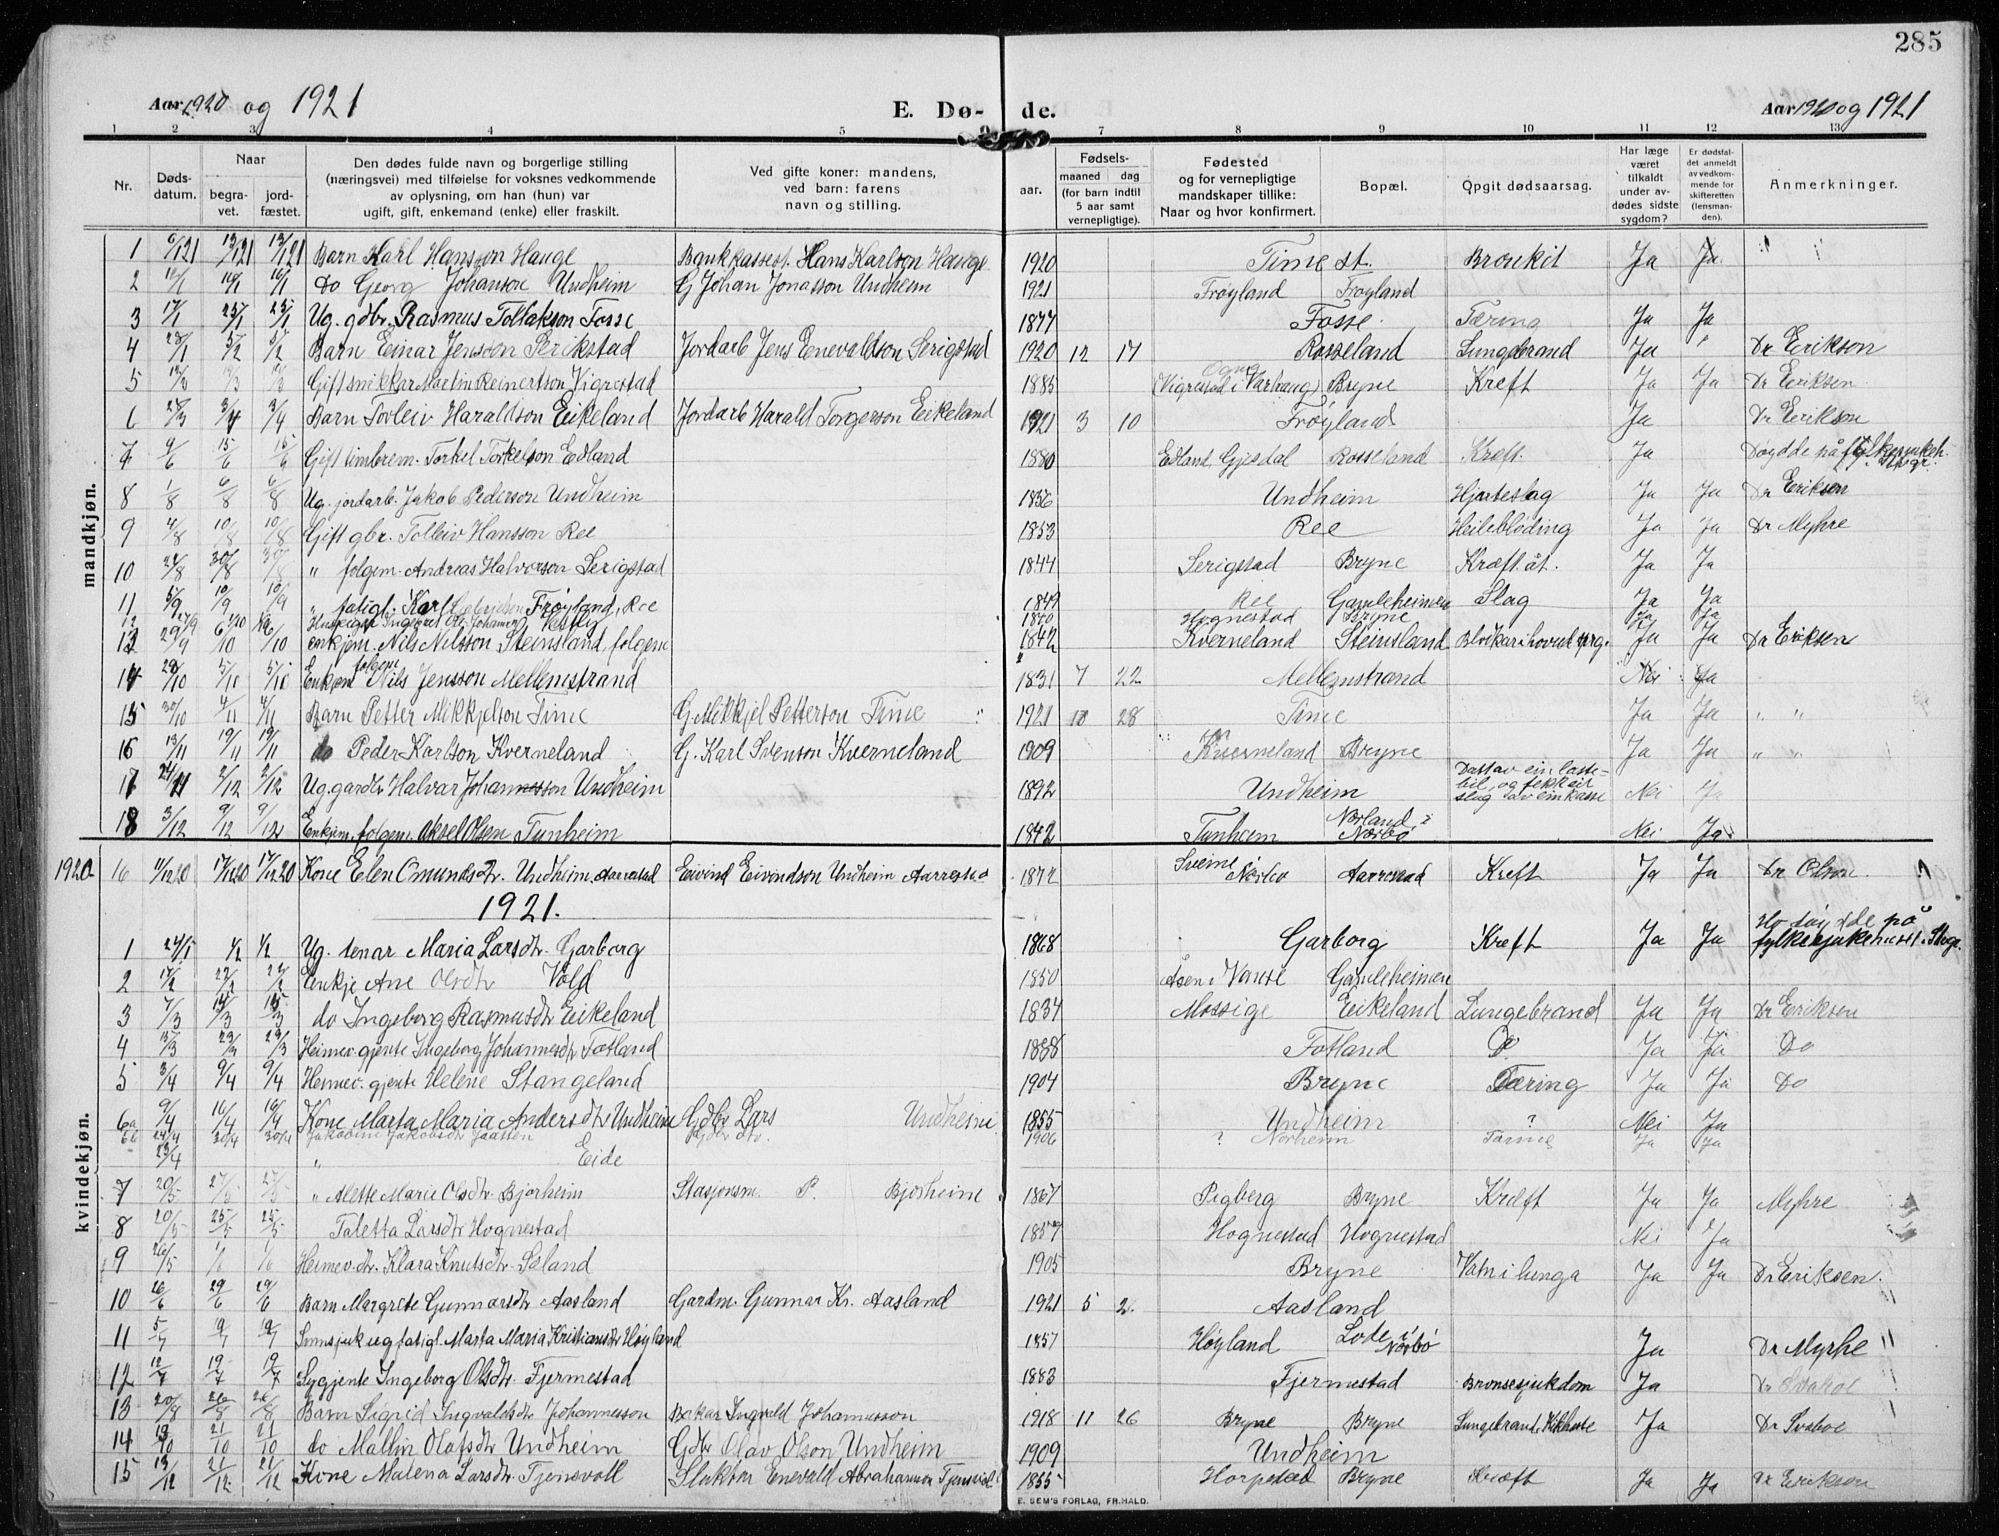 285
Aar 1920 og 1921 E. Dø- de. Aar 1920 og 1921
1 2 3 4 5 6 7 8 9 10 11 12 13
Nr. Døds-datum. Naar begra-vet. jord-fæstet. Den dødes fulde navn og borgerlige stilling (næringsvei) med tilføielse for voksnes vedkommende av oplysning, om han (hun) var ugift, gift, enkemand (enke) eller fraskilt. Ved gifte koner: mandens, ved barn: farens navn og stilling. aar. Fødsels- maaned dag (for barn indtil 5 aar samt vernepligtige). Fødested og for vernepligtige mandskaper tillike: Naar og hvor konfirmert. Bopæl. Opgit dødsaarsag. Har læge været tilkaldt under av-dødes sidste sygdom? Er dødsfal-det anmeldt av vedkom-mende for skifteretten (lensman-den). Anmerkninger.
mandkjøn.
1 6/1 21 13/1 21 13/1 21 Barn Karl Hansson Hauge Bankkasser. Hans Karlson Hauge 1920 Time st. Bronkit Ja Ja " "
2 Do Georg Johanson Undheim G Johan Jonasson Undheim 1921 Frøyland Frøyland
3 17/1 25/1 25/1 Ug. gdbr. Rasmus Tollakson Fosse 1877 Fosse. Tæring Ja Ja
4 28/1 5/2 5/2 Barn Einar Jensson Serikstad Jordarb Jens Enevaldson Serigstad 1920 12 17 Rosseland Lungebrand Ja " Dr Erikson
5 Gift snikkar Martin Reinertson Vigrestad 1885 Ogna (Vigrestad i Varhaug) Bryne Kreft Ja Ja Dr Eriksen
6 28/3 3/4 3/4 Barn Torleiv Haraldson Eikeland Jordarb Harald Torgerson Eikeland 1921 3 10 Frøyland Ja Dr Erikson
7 9/6 15/6 15/6 Gift timbrem. Torkel Torkelson Edland 1880 Edland, Gjesdal Rosseland Kreft. Ja Døydde på fylkessjukeh. i Stvgr.
8 1/8 6/8 6/8 Ug. jordarb. Jakob Pederson Undheim 1856 Undheim Hjarteslag Ja Ja Dr Eriksen
9 4/8 10/8 10/8 Gift gbr. Tolleiv Hansson Ree 1853 Ree Heilebløding Ja Ja Dr Myhre
10 24/8 30/8 30/8 " folgem. Andreas Halvorson Serigstad 1844 Serigstad Bryne Kræft. åt. Ja Ja
11 5/9 10/9 10/9 " fatigl. Karl Frøyland, Ree 1849 Ree Gamleheimen Slag Ja Ja
12 27/9 Vesby 1870 Hognestad Bryne Ja Ja
13 29/9 6/10 6/10 enkjem. Nils Nilsson Steinsland, folgem 1842 Kverneland Steinsland Ja Ja Dr Eriksen
14 28/10 5/10 5/10 Enkjem folgem Nils Jensson Mellemstrand 1831 7 22 Mellemstrand Nei Ja
15 30/10 4/11 4/11 Barn Petter Mikkjelson Time G Mikkjel Petterson Time " 1921 10 28 Time Ja Ja " "
16 13/11 19/11 19/11 do Peder Karlson Kverneland G. Karl Svenson Kverneland 1909 Kverneland Bryne Ja Ja " "
17 24/11 2/12 2/12 Ug. gardbr Halvar Johannesson Undheim 1892 Undheim Datt av ein laste-bil, og fekk eit slag av ein kasse Nei Ja
18 3/12 9/12 9/12 Enkjem. folgem. Aksel Olsen Tunheim 1842 Tunheim Norland i Nærbø Nei Ja
kvindekjøn.
1920 16 11/12 20 17/12 20 17/12 20 Kone Elen Omundsdtr. Undheim, Aarrestad Eivind Eivindson Undheim Aarrestad 1872 Nærbø Aarrestad Kreft Ja Ja Dr Olson
1921.
1 24/1 1/2 1/2 Ug. tenar Maria Larsdtr. Garborg 1868 Garborg Kreft Ja Ja Ho døydde på fylkesjukehuset i Stvgr.
2 17/2 22/2 22/2 Enkje Ane Olsdtr Vold 1850 Åsen i Vanse Gamleheimen
3 7/3 14/3 15/3 do Ingeborg Rasmusdtr Eikeland 1834 Mossige Eikeland Lungebrand Ja Ja Dr Eriksen
4 15/3 23/3 23/3 Heimev. gjente Ingeborg Johannesdtr Fotland 1888 Fotland Do Ja Ja Do
5 3/4 9/4 9/4 Heimev. gjente Helene Stangeland 1904 Bryne Tæring Ja Ja Do
6a 9/4 16/4 16/4 Kone Marta Maria Andersdtr Undheim Gdbr Lars Undheim 1855 Undheim ? Nei Ja
6b 24/4 30/4 30/4 Jakobine Jakobsdtr Jaatten 1906 ? Norheim Ja Ja
23/4 " Eide
7 20/5 27/5 27/5 " Alette Marie Olsdtr. Bjorheim Stasjonsm. P. Bjorheim 1867 Pigberg Bryne Kræft Ja Ja Myhre
8 20/5 25/5 25/5 Taletta Larsdtr Hognestad 1857 Hognestad Hognestad Nei Ja
9 26/5 1/6 1/6 Heimev. dtr. Klara Knutsdtr. Søland 1905 Bryne Vatn i lunga Ja Ja Dr Eriksen.
10 26/6 29/6 29/6 Barn Margrete Gunnarsdtr Aasland Gardm. Gunnar Kr. Aasland 1921 5 2 Aasland
11 5/7 9/7 9/7 Sinnsjuk ug fatigl. Marta Maria Kristiansdtr Høyland 1857 Høyland Lode i Nærbø Ja Dr Myrhe "
12 12/7 19/7 19/7 Sygjente Ingeborg Olsdtr. Fjermestad 1883 Fjermestad Bronsesjukdom Ja Dr Svahoe
13 20/8 26/8 26/8 Barn Sigrid Ingvaldsdtr Johannesson Bakar Ingvald Johannesson 1918 11 26 Bryne Bryne Lungebrand, Kikhoste Ja Dr Svahoe
14 18/10 21/10 21/10 do Mallin Olafsdtr Undheim Gdbr Olav Olson Undheim 1909 Undheim
15 13/12 21/12 21/12 Kone Malena Larsdtr Tjensvoll Slaktar Enevald Abrahamson Tjensvoll 1855 Horpestad Bryne Kræft Ja Ja Dr Eriksen
E. SEM'S FORLAG, FR.HALD.